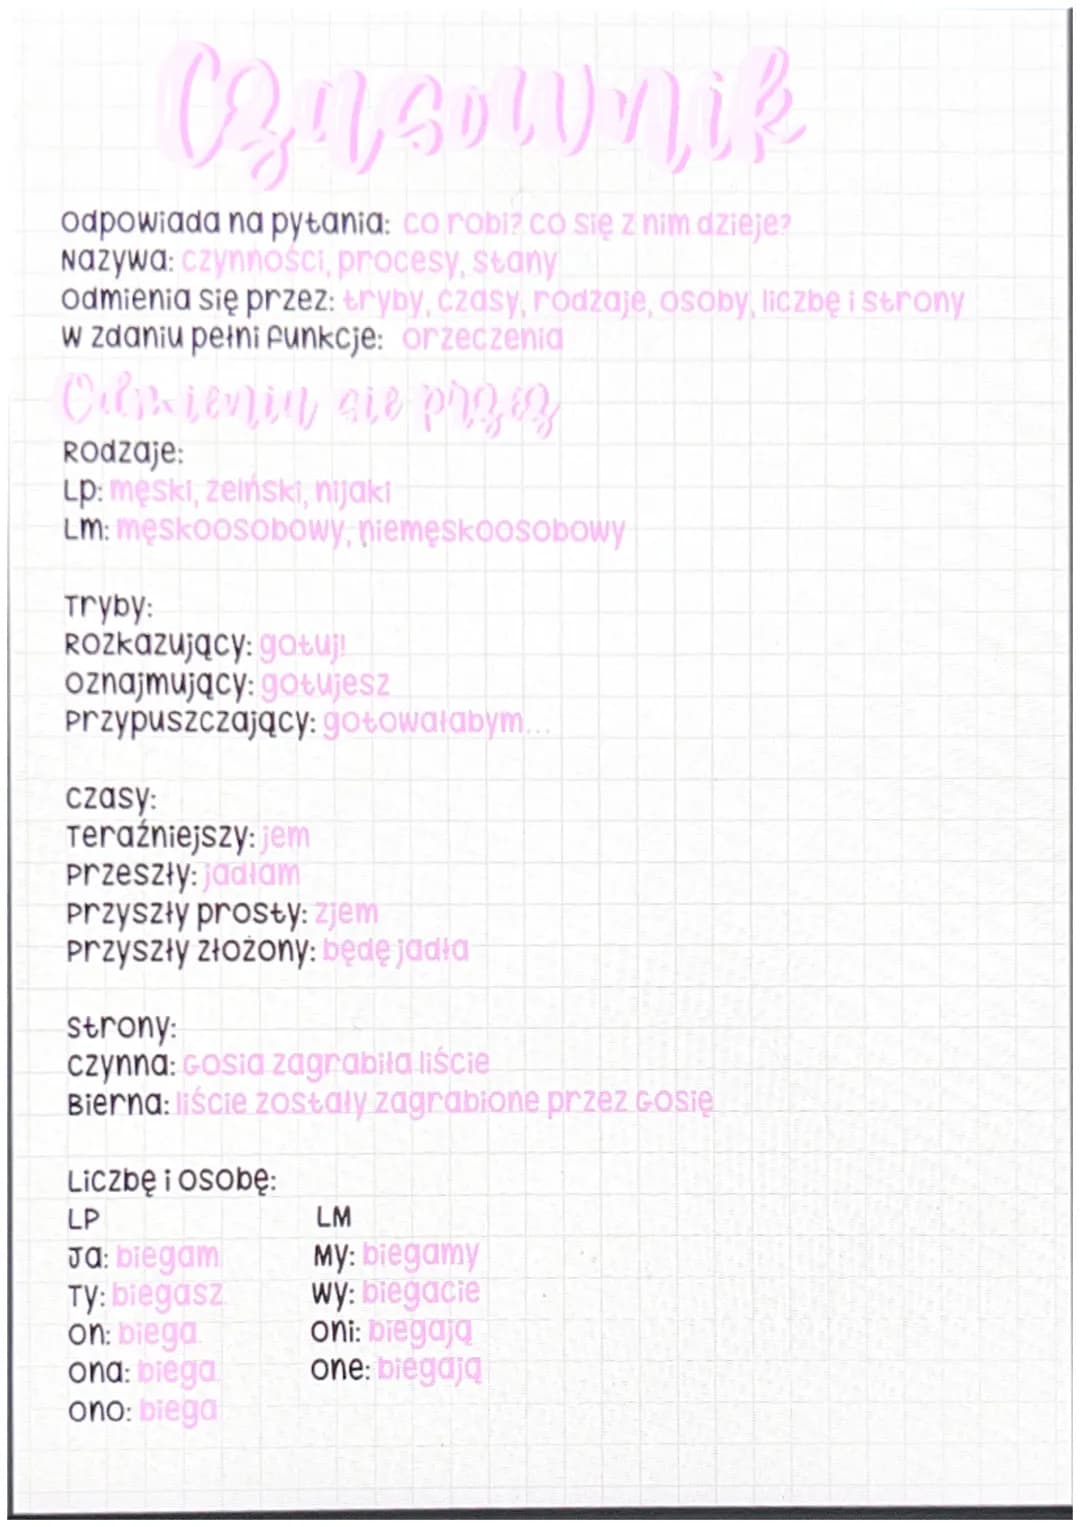 Czasownik
Odpowiada na pytania: co robi? co się z nim dzieje?
Nazywa: czynności, procesy, stany
Odmienia się przez: tryby, czasy, rodzaje, osoby, liczbę i strony
W zdaniu pełni funkcje: orzeczenia
Odmienia się przez
Rodzaje:
Lp: męski, żeiński, nijaki
Lm: męskoosobowy, niemęskoosobowy
Tryby:
Rozkazujący: gotuj!
Oznajmujący: gotujesz
Przypuszczający: gotowałabym...
Czasy:
Teraźniejszy: jem
Przeszły: jadłam
Przyszły prosty: zjem
Przyszły złożony: będę jadła
Strony:
Czynna: Gosia zagrabiła liście
Bierna: liście zostały zagrabione przez Gosię
Liczbę i osobę:
LP LM
Ja: biegam My: biegamy
Ty: biegasz Wy: biegacie
On: biega Oni: biegają
Ona: biega One: biegają
Ono: biega